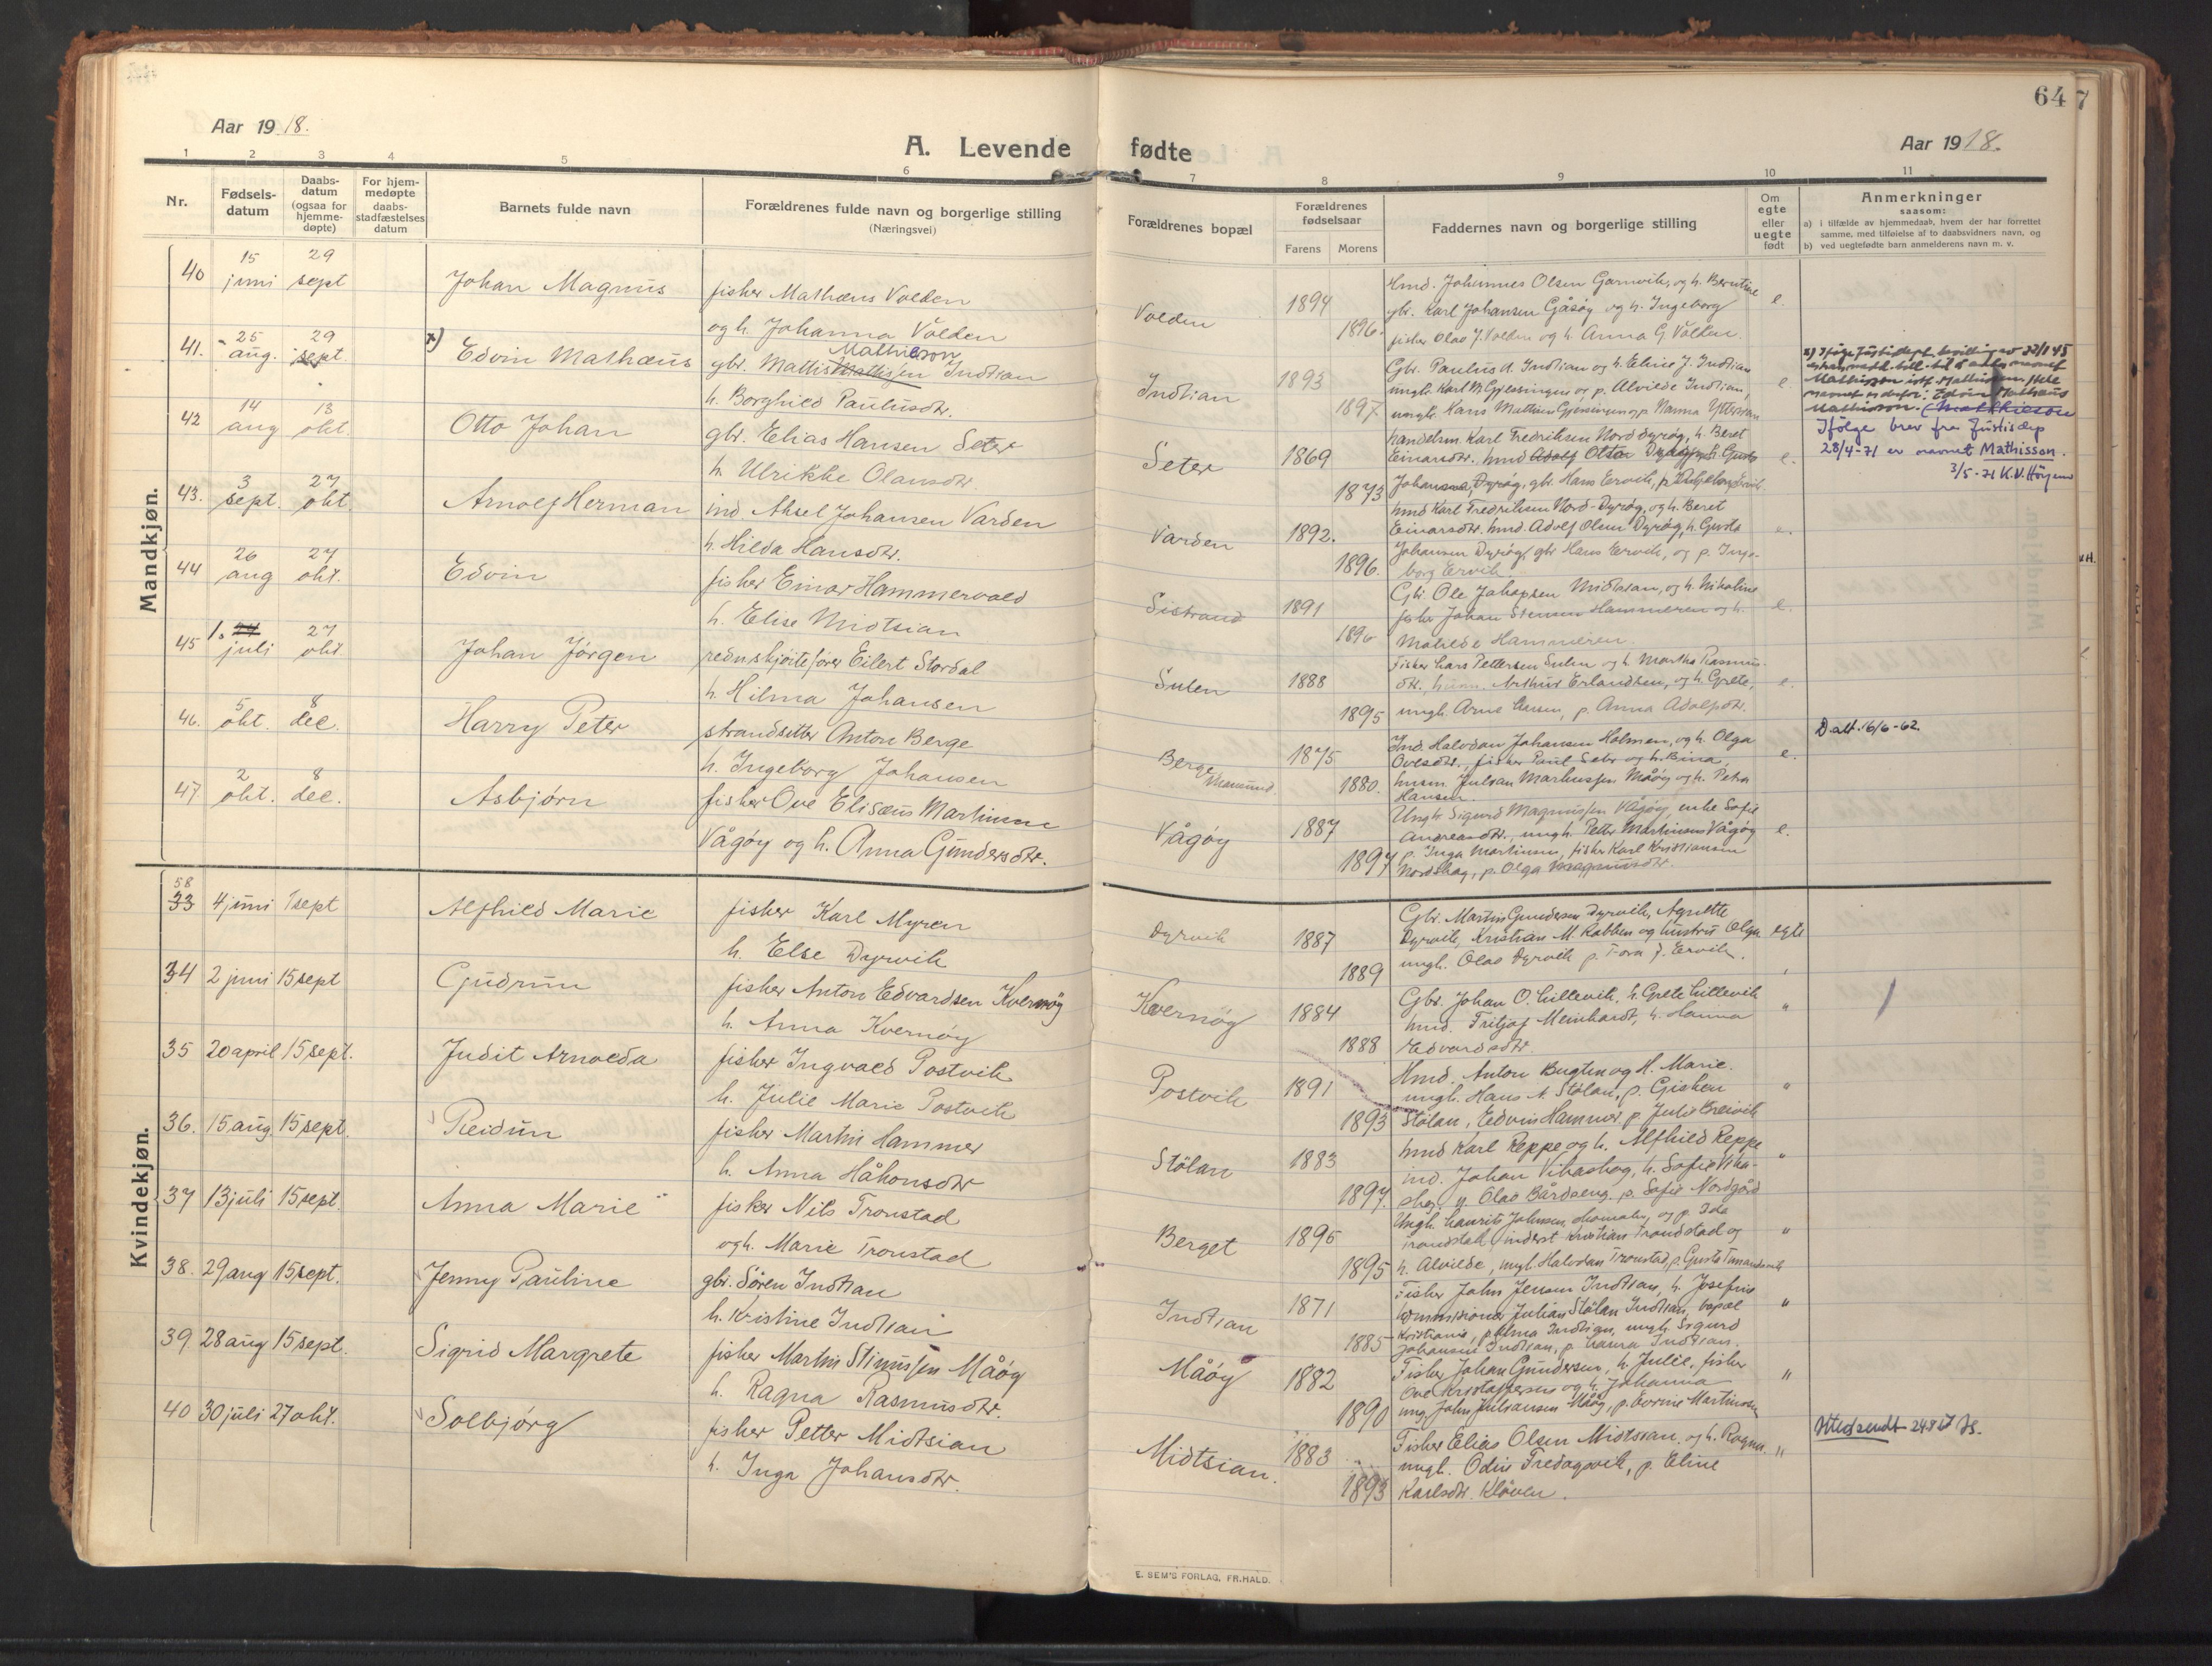 Aar 1918.
A. Levende fødte
Aar 1918.
64
7
1 2 3 4 5 6 7 8 9 10 11
Nr.
Fødsels-
datum
Daabs-
datum
(ogsaa for
hjemme-
døpte)
For hjem-
medøpte
daabs-
stadfæstelses
datum
Barnets fulde navn
Forældrenes fulde navn og borgerlige stilling
(Næringsvei)
Forældrenes bopæl
Forældrenes
fødselsaar
Farens Morens
Faddernes navn og borgerlige stilling
Om
egte
eller
uegte
født
Anmerkninger
saasom:
a) i tilfælde av hjemmedaab, hvem der har forrettet
samme, med tilføielse af to daabsvidners navn, og
b) ved uegtefødte barn anmelderens navn m. v.
Mandkjøn.
40 15 juni 29 sept Johan Magnus
fisker Mathæus Volden
og h. Johanna Volden
Volden 1894 1896.
Hmd. Johannes Olsen Garnvik, og h. Berntine
gbr. Karl Johansen Gåsøy og h. Ingeborg
fisker Olav J. Volden og h. Anna G. Volden.
e.
41. 25 aug. 29 sept x) Edvin Mathæus
Mathisson
gbr. Mathis Mathissen Indtian
h. Borghild Paulusdtr.
Indtian 1893 1897.
Gbr. Paulus A. Indtian og h. Eline J. Indtian
e.
Mathisson
Ifølge brev fra Justisdep
28/4-71 er navnet Mathisson.
3/5-71 K.N. Høyem
42 14 aug 13 okt. Otto Johan
gbr. Elias Hansen Seter
h. Ulrikke Olausdtr.
Seter 1869 1873
handelsm. Karl Fredriksen Nord dyrøy, h. Beret
e.
43. 3 sept. 27 okt. Arnolf Herman
ind. Aksel Johansen Varden
h. Hilda Hansdtr.
Varden 1892. 1896.
hmd Karl Fredriksen Nord-Dyrøy, og h. Beret
Einarsdtr. hmd Adolf Olsen Dyrøy, h. Gusta
Johansen Dyrøy, gbr Hans Ervik, og p. Inge-
borg Ervik.
e.
44 26 aug 27 okt. Edvin
fisker Einar Hammervold
h. Elise Midtsian
Sistrand 1891 1896
Gbr. Ole Johansen Midtsian, og h. Nikoline
fisker Johan Stenen Hammeren og h.
Matilde Hammeren.
e.
45 1. juli 27 okt. Johan Jörgen
rednskjöitefører Eilert Stordal
h. Hilma Johansen
Sulen 1888 1895
Fisker Lars Pettersen Sulen og h. Martha Rasmus-
dtr., Arthur Erlandsen, og h. Grete,
ungk. Arne Larsen, p. Anna Adolfsdtr.
e.
46. 5 okt. 8 dec. Harry Peter
strandsitter Anton Berge
h. Ingeborg Johansen
Berge 1875 1880.
Ind. Halvdan Johansen Holmen, og h. Olga
Ovesdtr., fisker Paul Seter og h. Bina,
husm. Julian Markussen Måøy og h. Petra
Hansen.
e.
D att. 16/6-62.
47. 2 okt. 8 dec. Asbjørn
fisker Ove Elisæus Martinsen
Vågøy og h. Anna Gundersdtr.
Vågøy 1887 1897
Ungk. Sigurd Magnussen Vågøy, enke Sofie
Andreasdtr., ungk. Petter Martinsen Vågøy
p. Inga Martinsen, fisker Karl Kristiansen
Nordskag, p. Olga Magnusdtr.
e.
Kvindekjøn.
58
33 4 juni 1 sept Alfhild Marie
fisker Karl Myren
h. Else Dyrvik
Dyrvik 1887 1889
Gbr. Martin Gundersen Dyrvik, Agnette
Dyrvik, Kristian M. Rabben og hustru Olga
ungk. Olav Dyrvik p. Tora J. Ervik.
egte
34 2 juni 15 sept Gudrun
fisker Anton Edvardsen Kvernøy
h. Anna Kvernøy
Kvernøy 1884 1888
Gbr. Johan O. Lillevik, h. Grete Lillevik
hmd. Fritjof Meinhardt, h. Hanna
Edvardsdtr.
"
35 20 april 15 sept. Judit Arnolda
fisker Ingvald Postvik
h. Julie Marie Postvik
Postvik 1891 1893
Hmd. Anton Bugten og H. Marie.
ungk. Hans A. Stölan, p. Gisken
Stölan, Edvin Hammer p. Julie Breivik
"
36. 15 aug. 15 sept. Reidun
fisker Martin Hammer
h. Anna Håkonsdtr
Stölan 1883 1897.
hmd Karl Reppe og h. Alfhild Reppe
ind. Johan Vikaskog, h. Sofie Vika-
skog. y. Olav Bårdseng, p. Sofie Nordgård
"
37 13 juli 15 sept. Anna Marie
fisker Nils Tronstad
og h. Marie Tronstad
Berget 1895 1895
h. Alvilde, ungk. Halvdan Tronstad, p. Gusta
"
38. 29 aug 15 sept. Jenny Pauline
gbr. Sören Indtian
h. Kristine Indtian
Indtian 1871 1885
Fisker John Jensen Indtian, h. Josefine
Julian Stölan Indtian, bopæl
Kristiania, p. Alma Indtian, ungk. Sigurd
Johansen Indtian, p. Laura Indtian.
"
39. 28 aug 15 sept. Sigrid Margrete
fisker Martin Stinussen Måøy
h. Ragna Rasmusdtr.
Måøy 1882 1890
Fisker Johan Gundersen, h. Julie, fisker
Ove Kristoffersen og h. Johanna
ung. John Julsansen Måøy, p. Martinsen
"
40 30 juli 27 okt. Solbjörg
fisker Petter Midtsian
h. Inga Johansdtr.
Midtsian. 1883 1893
Fisker Elias Olsen Midtsian, og h. Ragna.
ungk. Odin Fredagsvik, p. Eline
Karlsdtr. Klöven.
"
Utledsendt
E. SEM'S FORLAG, FR.HALD.